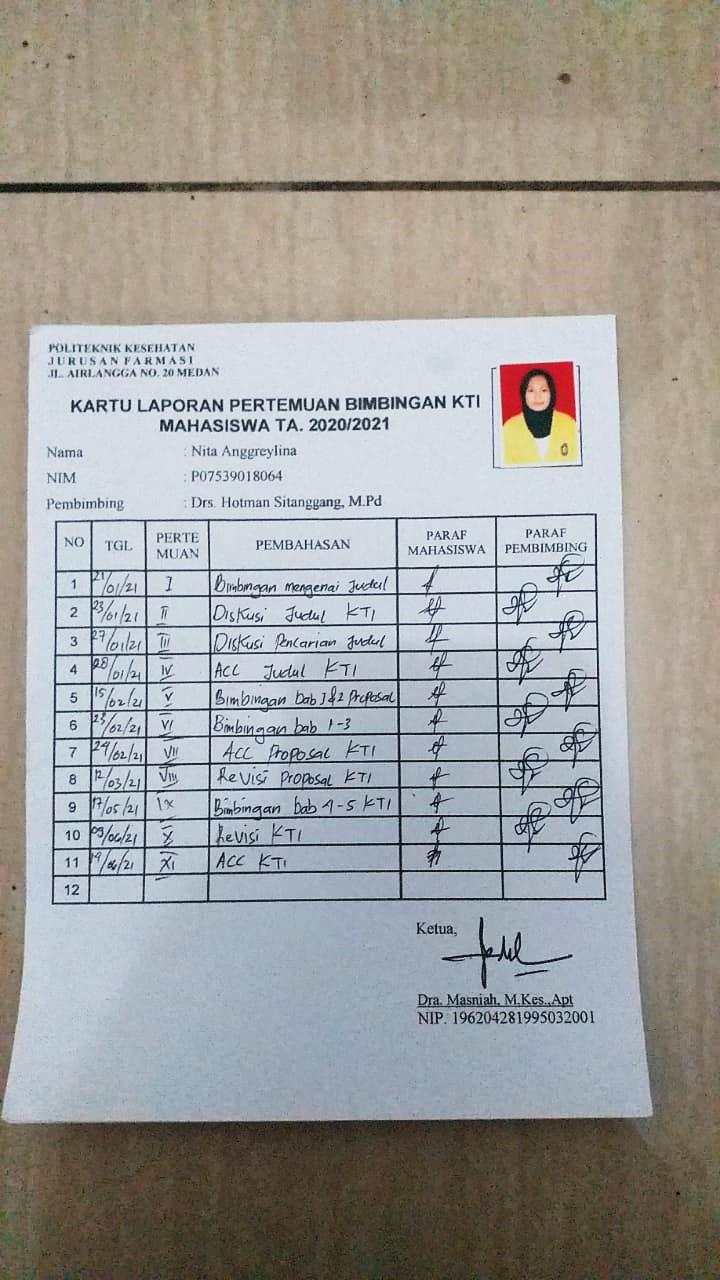 POLITEKNIK KESEHATAN
JURUSAN FARMASI
JL. AIRLANGGA NO. 20 MEDAN
KARTU LAPORAN PERTEMUAN BIMBINGAN KTI
MAHASISWA TA. 2020/2021
Nama : Nita Anggreylina
NIM : P07539018064
Pembimbing : Drs. Hotman Sitanggang, M.Pd
NO TGL PERTE MUAN PEMBAHASAN PARAF MAHASISWA PARAF PEMBIMBING
1 21/01/21 I Bimbingan mengenai Judul
2 23/01/21 II Diskusi Judul KTI
3 27/01/21 III Diskusi Pencarian Judul
4 28/01/21 IV ACC Judul KTI
5 15/02/21 V Bimbingan bab 1 & 2 Proposal
6 23/02/21 VI Bimbingan bab 1-3
7 24/02/21 VII ACC Proposal KTI
8 12/03/21 VIII Revisi Proposal KTI
9 17/05/21 IX Bimbingan bab 4-5 KTI
10 09/06/21 X Revisi KTI
11 /06/21 XI ACC KTI
12
Ketua,
Dra. Masniah, M.Kes.,Apt
NIP. 196204281995032001